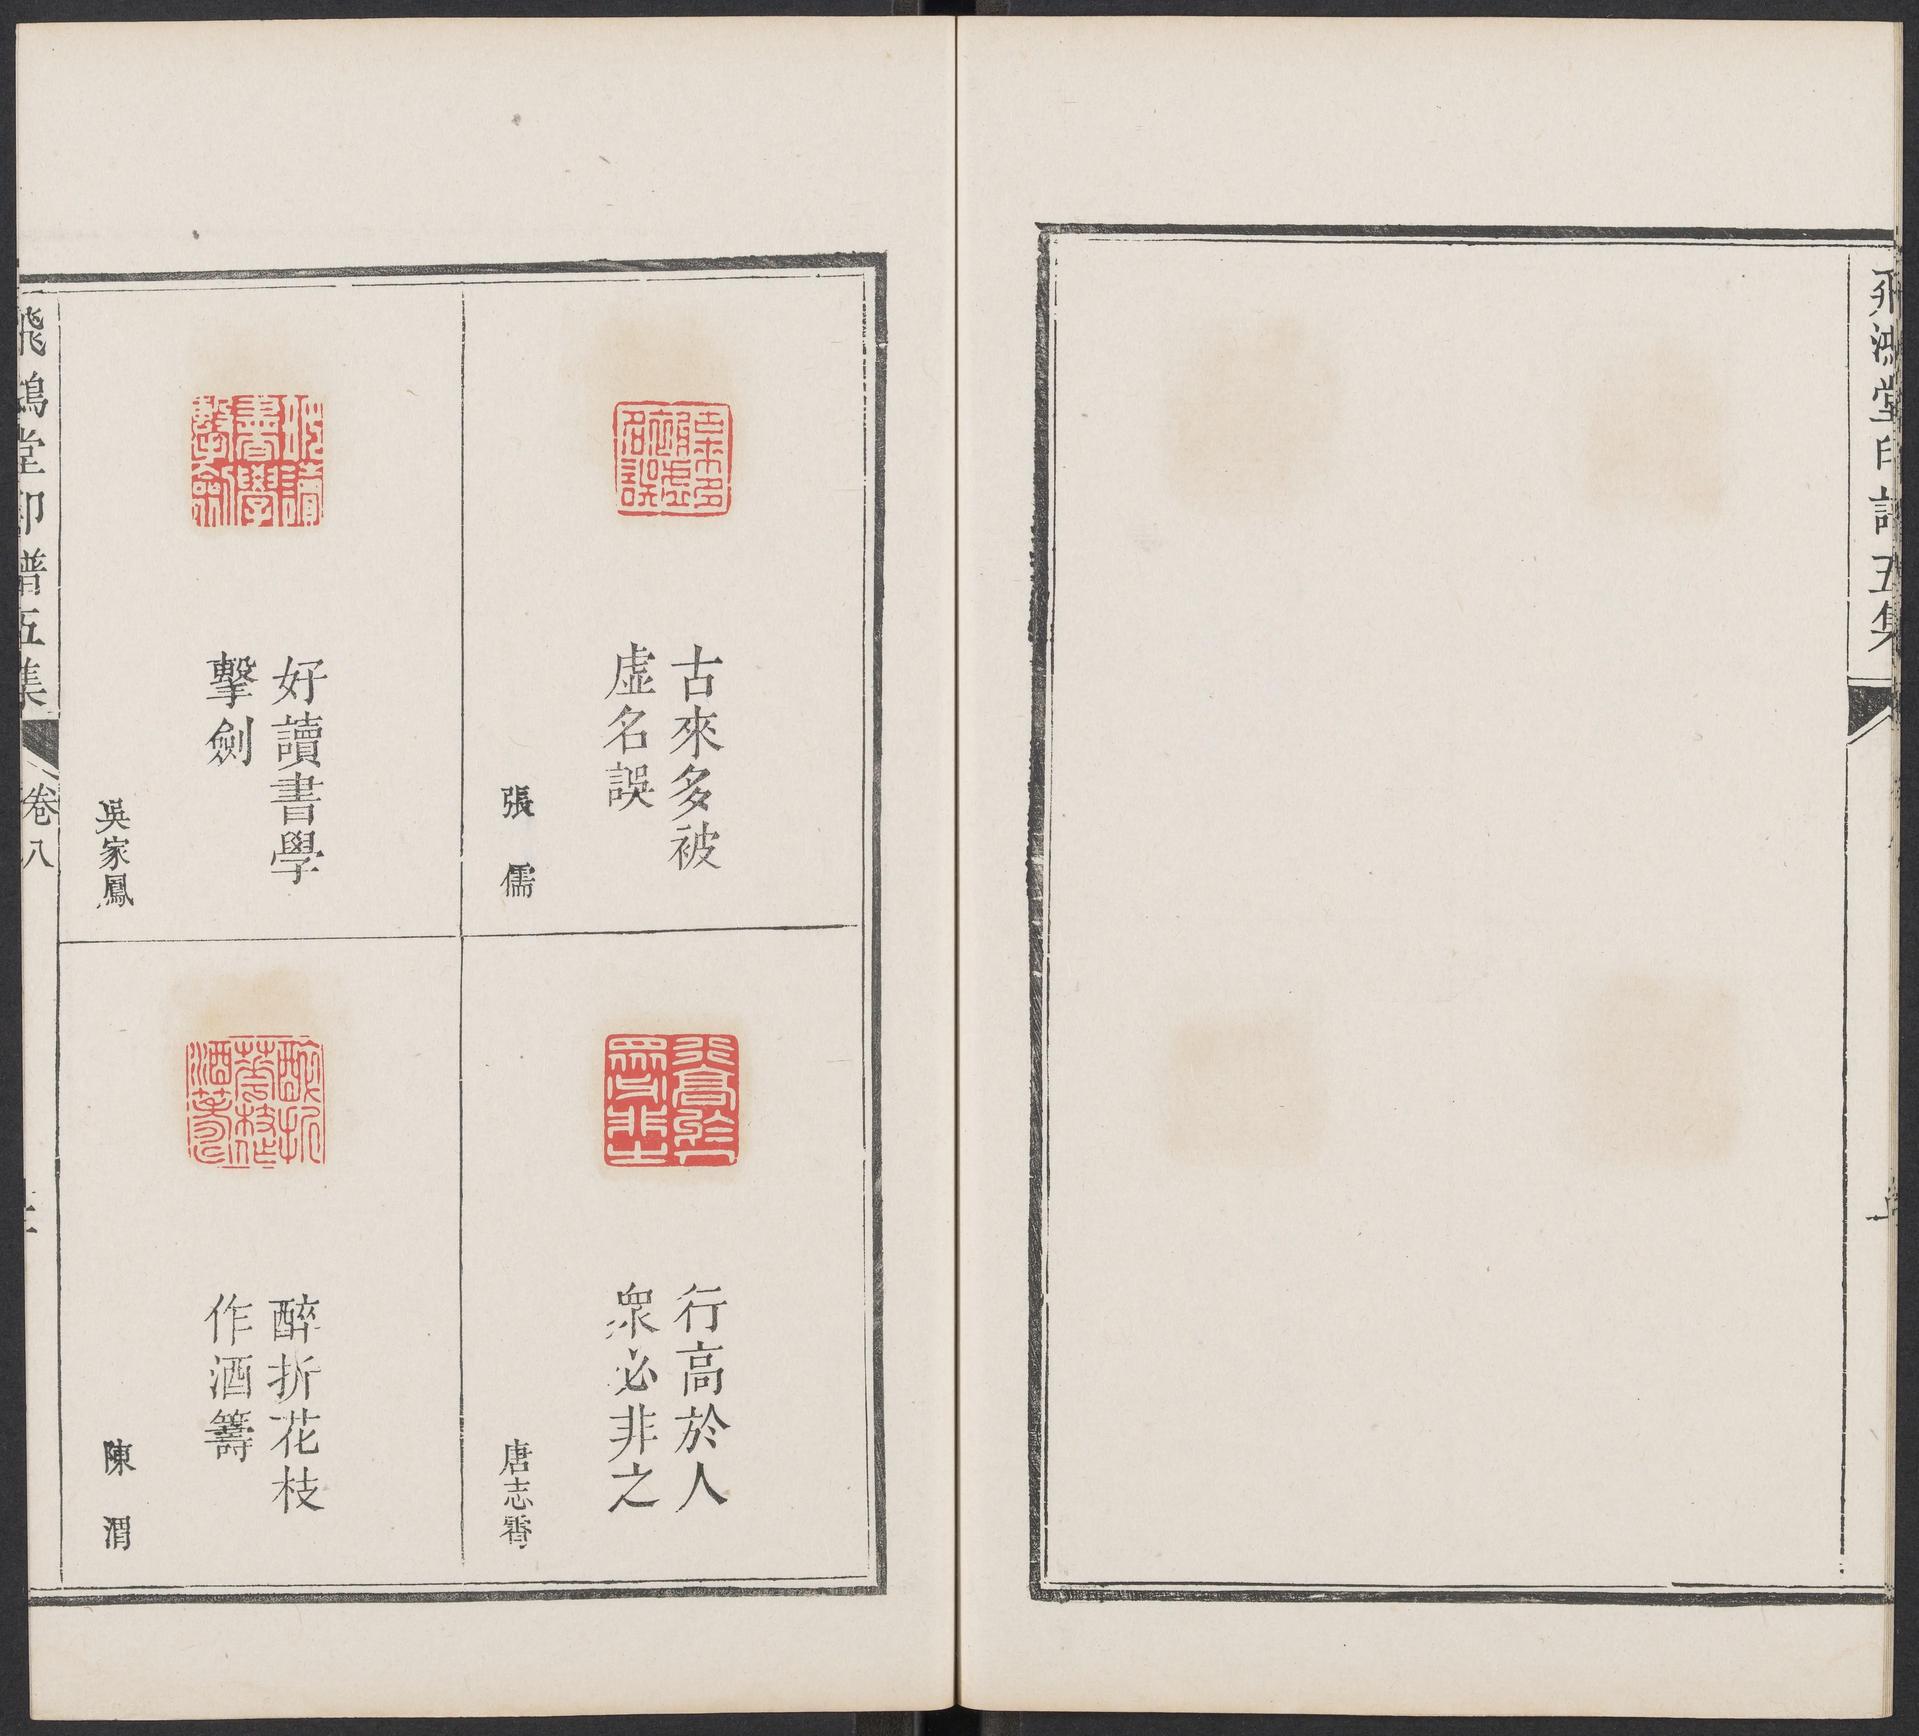 飛鴻堂印譜五集
古來多被
虛名誤
張儒
行高於人
衆必非之
唐志霄
好讀書學
擊劍
吳家鳳
醉折花枝
作酒籌
陳渭
飛鴻堂印譜五集
卷八